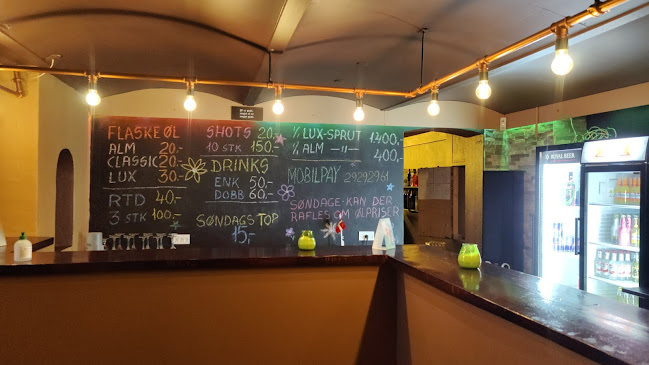 FLASKE ØL
ALM 20.-
CLASSIC 20.-
LUX 30.-
RTD 40.-
3 STK 100.-
SHOTS 20.-
10 STK 150.-
DRINKS
ENK 50.-
DOBB 60.-
SØNDAGS TOP
15,-
LUX-SPRUT
ALM -11- 400,-
MOBILPAY 29292961
SØNDAGE·KAN DER
RAFLES OM ØLPRISER
ROYAL BEER